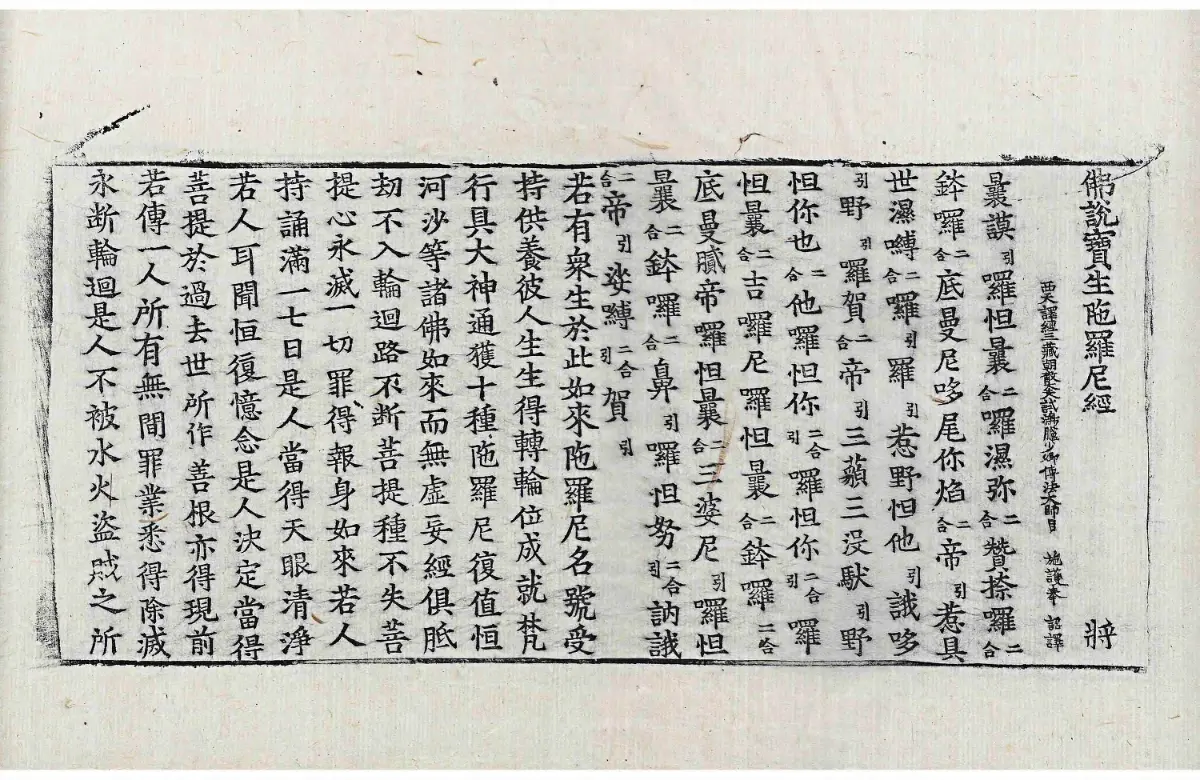 佛說寶生陁羅尼經 將
西天譯經三藏朝散大夫試鴻臚少卿傳法大師臣 施護奉 詔譯
曩謨引囉怛曩二合囉濕弥二合贊捺囉二合
鉢囉二合底曼尼哆尾你焰二合帝引惹具
世濕嚩二合囉引囉引惹野怛他引誐哆
引野引囉賀二合帝引三藐三没馱引野
怛你也二合他囉怛你二合引囉怛你二合引囉
怛曩二合吉囉尼囉怛曩二合鉢囉二合
底曼膩帝囉怛曩二合三婆尼引囉怛
曩二合鉢囉二合鼻引囉怛努二合引訥誐
二合帝引娑嚩二合引賀引
若有衆生於此如來陁羅尼名號受
持供養彼人生生得轉輪位成就梵
行具大神通獲十種陁羅尼復值恒
河沙等諸佛如來而無虛妄經俱胝
劫不入輪迴路不断菩提種不失菩
提心永滅一切罪得報身如來若人
持誦滿一七日是人當得天眼清淨
若人耳聞恒復憶念是人決定當得
菩提於過去世所作善根亦得現前
若傳一人所有無間罪業悉得除滅
永断輪迴是人不被水火盜賊之所